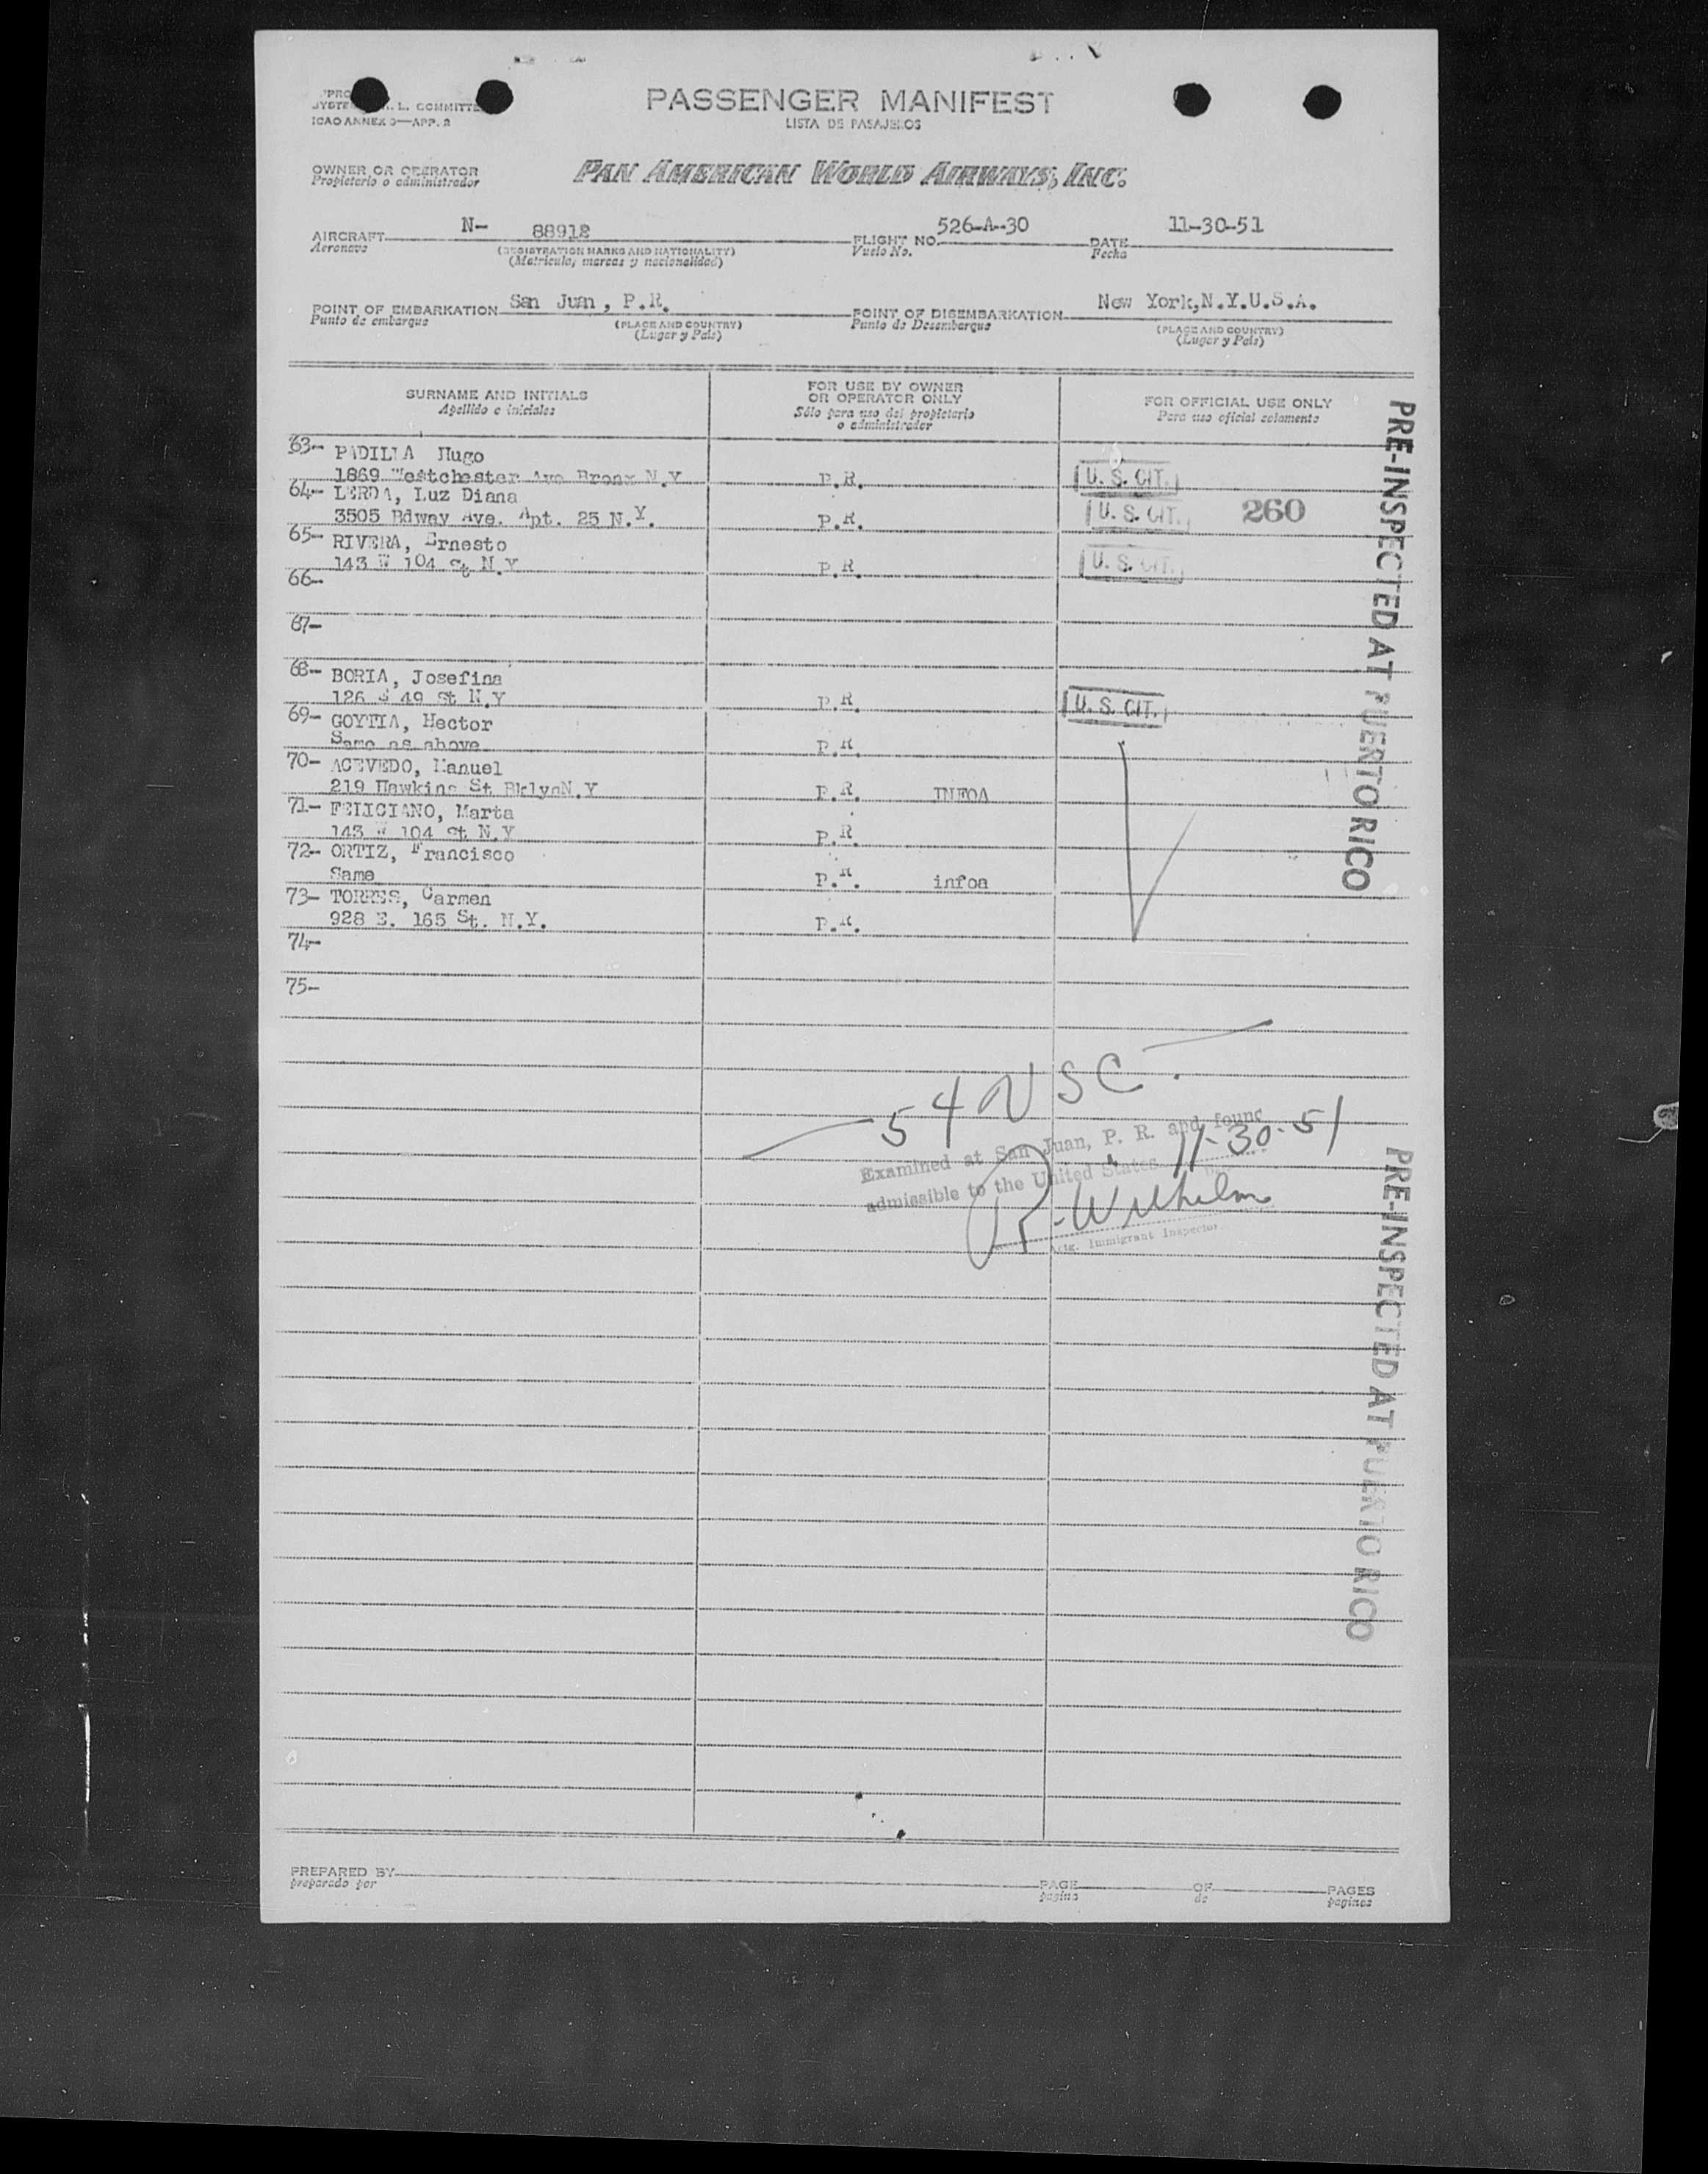 L. COMMITTE
ICAO ANNEX 9—APP. 2
PASSENGER MANIFEST
LISTA DE PASAJEROS
OWNER OR OPERATOR
Propietario o administrador
PAN AMERICAN WORLD AIRWAYS, INC.
AIRCRAFT N- 88912 FLIGHT NO. 526-A-30 DATE 11-30-51
Aeronave (REGISTRATION MARKS AND NATIONALITY) Vuelo No. Fecha
(Matricula, marcas y nacionalidad)
POINT OF EMBARKATION San Juan, P.R. POINT OF DISEMBARKATION New York,N.Y.U.S.A.
Punto de embarque (PLACE AND COUNTRY) Punto de Desembarque (PLACE AND COUNTRY)
(Lugar y País) (Lugar y País)
SURNAME AND INITIALS
Apellido e iniciales
FOR USE BY OWNER
OR OPERATOR ONLY
Sólo para uso del propietario
o administrador
FOR OFFICIAL USE ONLY
Para uso oficial solamente
63- PADILLA Hugo
1869 Westchester Ave Bronx N.Y P.R. U. S. CIT.
64- LERDA, Luz Diana
3505 Bdway Ave. Apt. 25 N.Y. P.R. U. S. CIT. 260
65- RIVERA, Ernesto
143 W 104 St N.Y P.R. U. S. CIT.
66-
67-
68- BORIA, Josefina
126 E 49 St N.Y P.R. U. S. CIT.
69- GOYTIA, Hector
Same as above P.R.
70- ACEVEDO, Manuel
219 Hawkins St BklynN.Y P.R. INFOA
71- FELICIANO, Marta
143 W 104 St N.Y P.R.
72- ORTIZ, Francisco
Same P.R. infoa
73- TORRES, Carmen
928 E. 165 St. N.Y. P.R.
74-
75-
PRE-INSPECTED AT PUERTO RICO
54 USC.
Examined at San Juan, P. R. and found
admissible to the United States 11-30-51
R. Wilhelm
Actg. Immigrant Inspector
PRE-INSPECTED AT PUERTO RICO
PREPARED BY PAGE OF PAGES
preparado por pagina de paginas